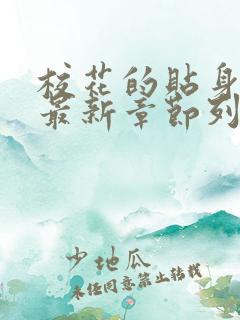 校花的贴身
最新章节列
少地瓜
未经同意禁止转载